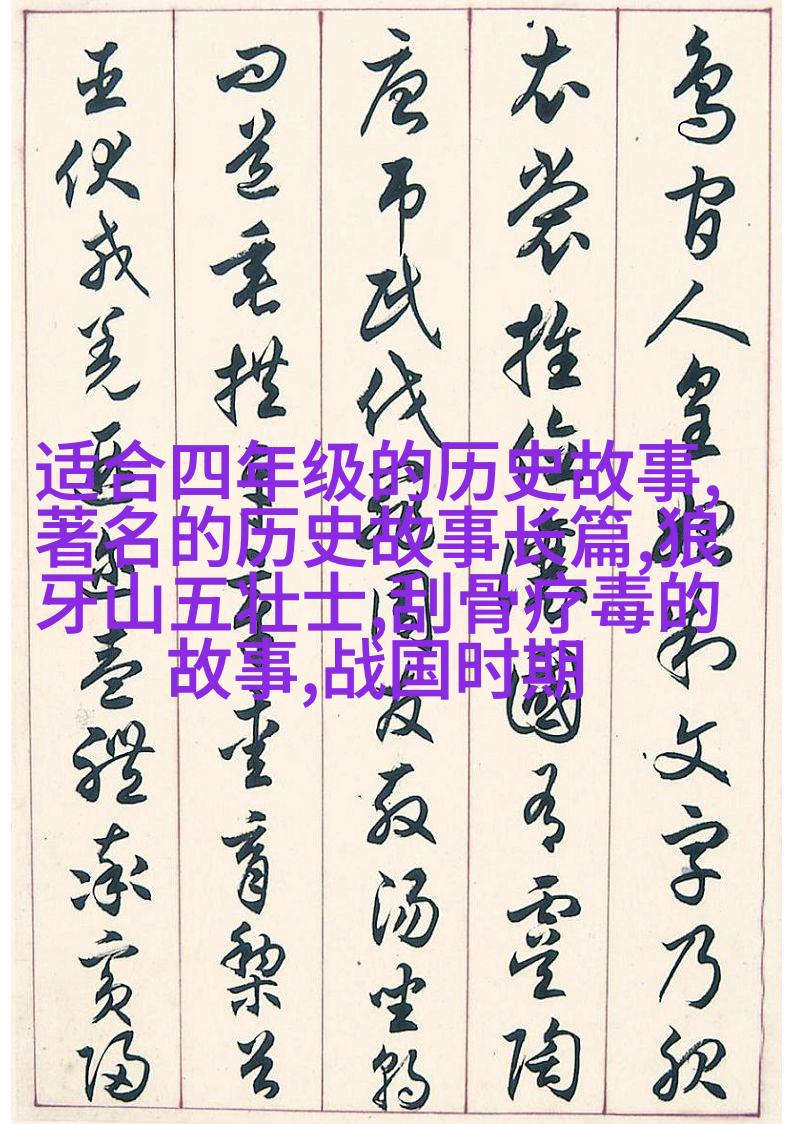 鳥官人皇始制文字乃服
衣裳推位讓國有虞陶
唐吊民伐罪周發殷湯坐朝
問道垂拱平章愛育黎首
臣伏戎羌遐迩壹體率賓歸
适合四年级的历史故事,
著名的历史故事长篇,狼
牙山五壮士,刮骨疗毒的
故事,战国时期